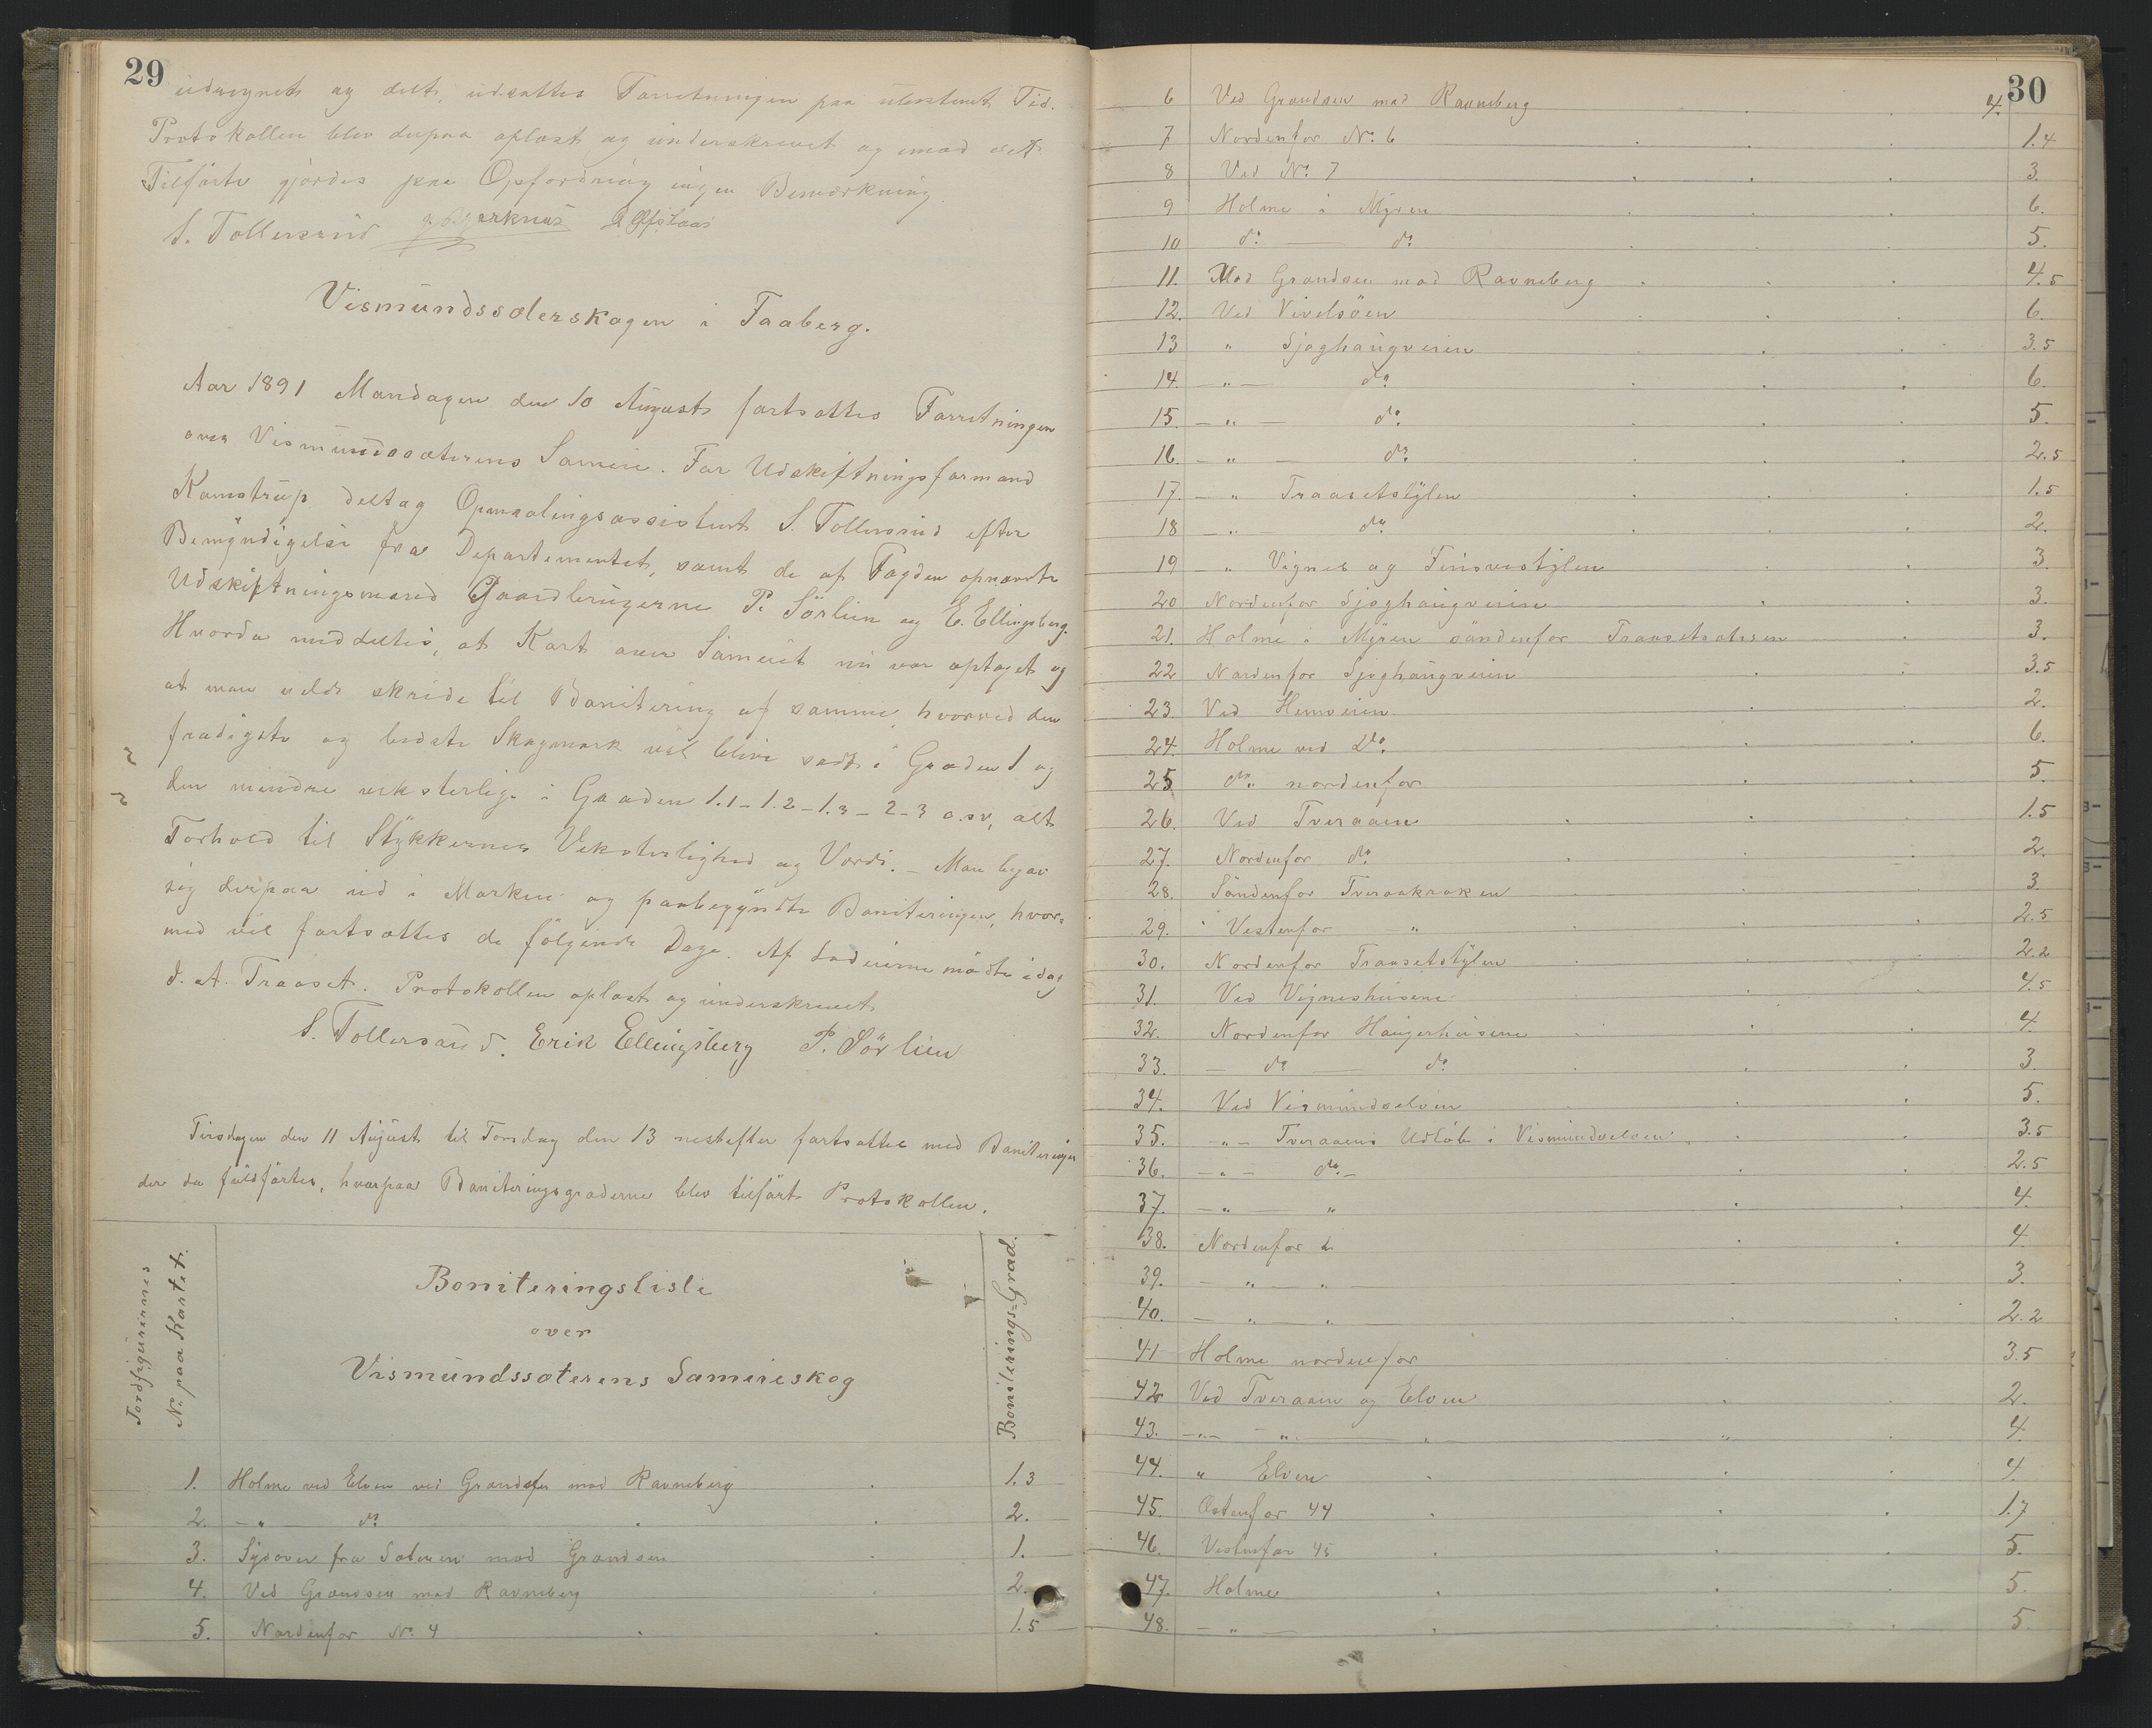 29
udregnet og delt, udsattes Forretningen paa ubestemt Tid.
Protokollen blev derpaa oplæst og underskrevet og imod det
Tilførte gjordes paa Opfordring ingen Bemærkning.
S. Tollersrud
Vismundssæterskogen i Faaberg.
Aar 1891 Mandagen den 10 August fortsattes Forretningen
over Vismundssæterens Sameie. For Udskiftningsformand
Kamstrup deltog Opmaalingsassistent S. Tollersrud efter
Bemyndigelse fra Departementet, samt de af Fogden opnævnte
Udskiftningsmænd Gaardbrugerne P. Sörlien og E. Ellingsberg.
Hvorda meddeltes, at Kart over Sameiet nu var optaget og
at man vilde skride til Bonitering af samme, hvorved den
frodigste og bedste Skogmark vil blive sadt i Graden 1 og
den mindre veksterlige i Graden 1.1 - 1.2 - 1.3 - 2 - 3 o.sv, alt
Forhold til Stykkernes Veksterlighed og Værdi. - Man begav
sig derpaa ud i Marken og paabegyndte Boniteringen, hvor=
med vil fortsættes de følgende Dage. Af Lodeierne mødte idag
J. A. Traaset. Protokollen oplæst og underskrevet
S. Tollersrud. Erik Ellingsberg P. Sörlien
Tirsdagen den 11 August til Torsdag den 13 nestefter fortsattes med Boniteringen
der da fuldførtes, hvorpaa Boniteringsgraderne blev tilført Protokollen.
Jordfigurernes
No. paa Kartet.
Boniteringsliste
over
Vismundssæterens Sameieskog
Boniterings=Grad.
1. Holme ved Elven ved Grændsen mod Ravneberg . 1.3
2. - " - do. . . 2.
3. Sydover fra Sæteren mod Grændsen . 1.
4. Ved Grændsen mod Ravneberg . 2.
5. Nordenfor No. 4 . . 1.5
30
6 Ved Grændsen mod Ravneberg . . 4.
7 Nordenfor No. 6 . . . 1.4
8 Ved No. 7 . . . 3.
9 Holme i Myren . . . 6.
10 do. - do. . . . 5.
11. Mod Grændsen mod Ravneberg . . . 4.5
12. Ved Vivelsöen . . . 6.
13 " Sjøghaugveien . . . 3.5
14. - " - do. . . . 6.
15. - " - do. . . . 5.
16. - " - do. . . . 2.5
17. - " Traasetstylen . . . 1.5
18 - " - do. . . . 2.
19 - " Vignes og Finsvestylen . . 3.
20 Nordenfor Sjøghaugveien . . 3.
21. Holme i Myren søndenfor Traasetsætren . 3.
22 Nordenfor Sjøghaugveien . . 3.5
23. Ved Hemveien . . 2.
24. Holme ved Do. . . 6.
25 do. nordenfor . . 5.
26. Ved Tveraaen . . . 1.5
27. Nordenfor do. . . . 2.
28. Søndenfor Tveraakroken . . 3
29. " Vestenfor - " . . 2.5
30. Nordenfor Traasetstylen . . . 2.2
31. Ved Vigneshusene . . 4.5
32. Nordenfor Haugerhusene . . . 4.
33. - do. - do. . . . 3.
34. Ved Vismundselven . . 5.
35. - " - Tveraaens Udløb i Vismundselven . . . 3.5
36. - " - do. - . . 2.5
37. - " - " . . 4.
38. Nordenfor do . . 4.
39. - " - " . . 3.
40. - " - " . . 2.2
41 Holme nordenfor . . 3.5
42 Ved Tveraaen og Elven . . 2.
43. - " - - " - " " . 4.
44. " Elven . . . 4.
45. Østenfor 44 . . . 1.7
46. Vestenfor 45 . . . 5.
47. Holme . . . 5.
48. - " - . . . 5.